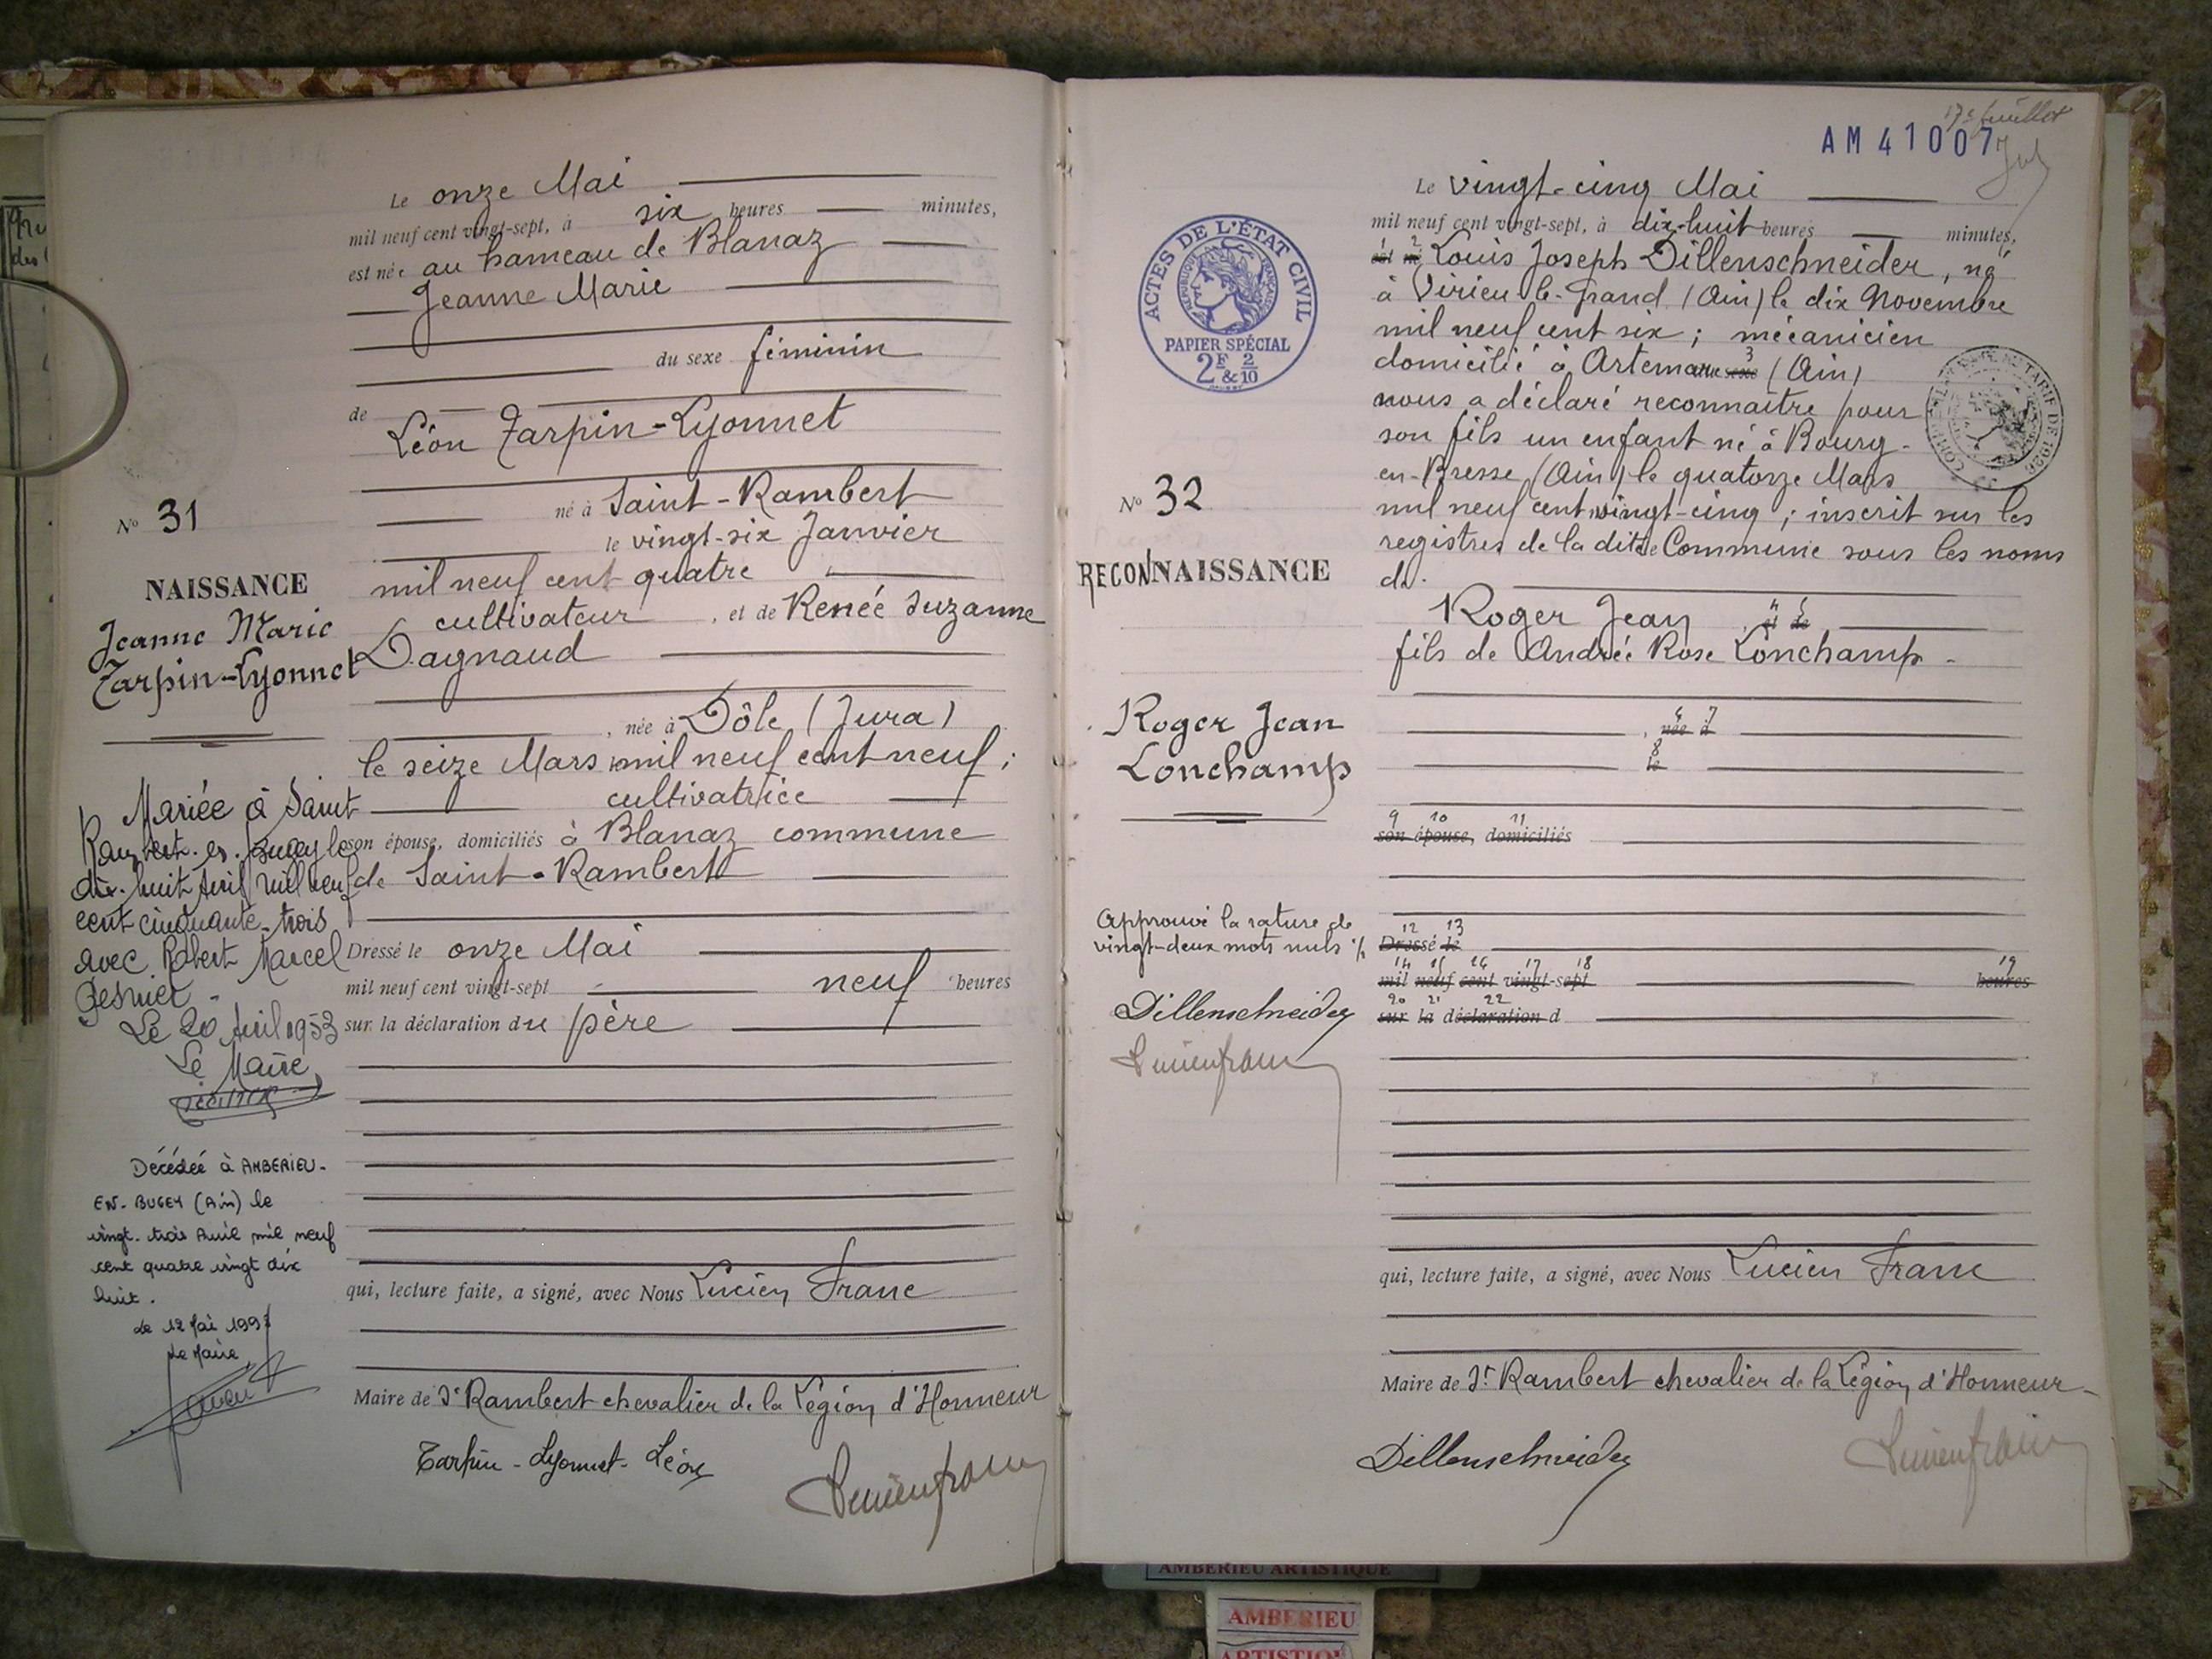 Le onze Mai
mil neuf cent vingt-sept, à six heures minutes,
est née au hameau de Blanaz
Jeanne Marie
du sexe féminin
de
Léon Tarpin-Lyonnet
né à Saint-Rambert
le vingt-six Janvier
mil neuf cent quatre
cultivateur, et de Renée Suzanne
Dagnaud
, née à Dôle (Jura)
le seize Mars mil neuf cent neuf;
cultivatrice
son épouse, domiciliés à Blanaz commune
de Saint-Rambert
Dressé le onze Mai
mil neuf cent vingt-sept neuf heures
sur la déclaration du père
qui, lecture faite, a signé, avec Nous Lucien Franc
Maire de St Rambert chevalier de la Légion d'Honneur
Tarpin-Lyonnet-Léon
Lucien franc
No 31
NAISSANCE
Jeanne Marie
Tarpin-Lyonnet
Mariée à Saint
Rambert-en-Bugey le
dix-huit Avril mil neuf
cent cinquante-trois
avec Robert Marcel
Le 20 Avril 1953
Le Maire
Décédée à AMBERIEU-
EN-BUGEY (Ain) le
vingt-trois Avril mil neuf
cent quatre vingt dix
huit.
Le 12 Mai 1998
Le Maire
17e feuillet
AM 41007
Le vingt-cinq Mai
mil neuf cent vingt-sept, à dix-huit heures minutes,
est né Louis Joseph Dillenschneider, né
à Virieu-le-Grand (Ain) le dix Novembre
mil neuf cent six; mécanicien
domicilié à Artemare (Ain)
nous a déclaré reconnaître pour
son fils un enfant né à Bourg-
en-Bresse (Ain) le quatorze Mars
mil neuf cent vingt-cinq; inscrit sur les
registres de la dite Commune sous les noms
de.
Roger Jean, et de
fils de Andrée Rose Lonchamp-
, née à
le
son épouse, domiciliés
Dressé le
mil neuf cent vingt-sept heures
sur la déclaration d
qui, lecture faite, a signé, avec Nous Lucien Franc
Maire de St Rambert chevalier de la Légion d'Honneur-
Dillenschneider
Lucien franc
ACTES DE L'ÉTAT CIVIL
RÉPUBLIQUE FRANÇAISE
PAPIER SPÉCIAL
2F & 2/10
No 32
RECONNAISSANCE
Roger Jean
Lonchamp
Approuvé la rature de
vingt-deux mots nuls
Dillenschneider
Lucien franc
AMBERIEU ARTISTIQUE
AMBERIEU